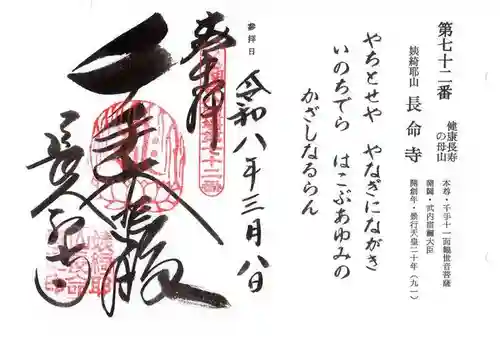 第七十二番
姨綺耶山 長命寺
健康長寿
の母山
本尊・千手十一面観世音菩薩
開闢・武内宿禰大臣
開創年・景行天皇二十年（九一）
やちとせや やなぎにながき
いのちでら はこぶあゆみの
かざしなるらん
参拝日
令和八年三月八日
奉拝
長命寺